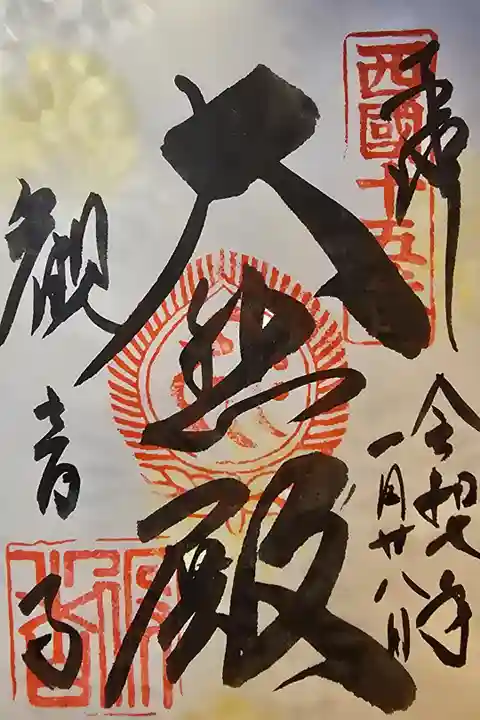 奉拝
西國十五番
令和七年
一月廿八日
大悲殿
観音寺